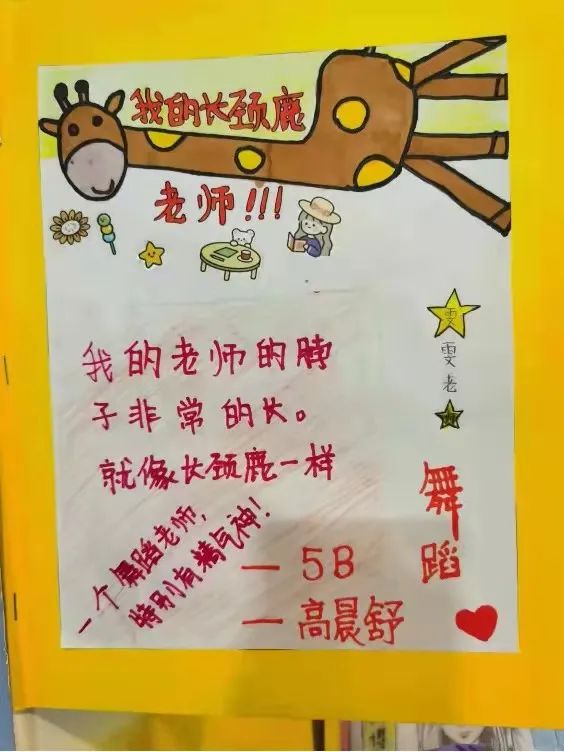 我的长颈鹿
老师!!!
雯
雯
老
师
我的老师的脖
子非常的长。
就像长颈鹿一样
一个舞蹈老师，
特别有精气神!
舞
蹈
— 5B
— 高晨舒